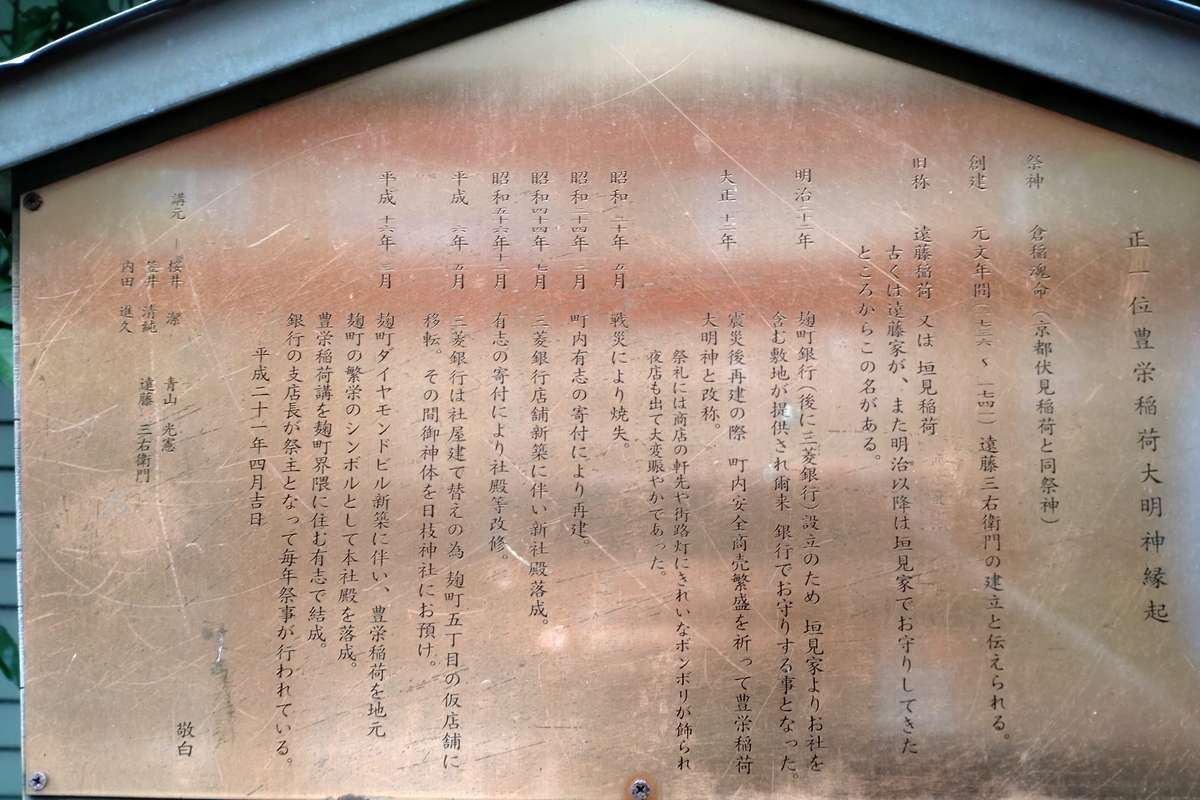 正一位豊栄稲荷大明神縁起
祭神 倉稲魂命（京都伏見稲荷と同祭神）
創建 元文年間（一七三六 〜 一七四一）遠藤三右衛門の建立と伝えられる。
旧称 遠藤稲荷 又は 垣見稲荷
古くは遠藤家が、また明治以降は垣見家でお守りしてきた
ところからこの名がある。
明治三十二年 麹町銀行（後に三菱銀行）設立のため 垣見家よりお社を
含む敷地が提供され爾来 銀行でお守りする事となった。
大正 十二年 震災後再建の際 町内安全商売繁盛を祈って豊栄稲荷
大明神と改称。
祭礼には商店の軒先や街路灯にきれいなボンボリが飾られ
夜店も出て大変賑やかであった。
昭和 二十年 五月 戦災により焼失。
昭和二十四年 二月 町内有志の寄付により再建。
昭和四十四年 七月 三菱銀行店舗新築に伴い新社殿落成。
昭和五十六年十一月 有志の寄付により社殿等改修。
平成 六年 五月 三菱銀行は社屋建て替えの為 麹町五丁目の仮店舗に
移転。その間御神体を日枝神社にお預け。
平成 十六年 三月 麹町ダイヤモンドビル新築に伴い、豊栄稲荷を地元
麹町の繁栄のシンボルとして本社殿を落成。
豊栄稲荷講を麹町界隈に住む有志で結成。
銀行の支店長が祭主となって毎年祭事が行われている。
平成二十一年四月吉日
敬白
講元 桜井 潔 青山 光憲
笠井 清純 遠藤 三右衛門
内田 進久